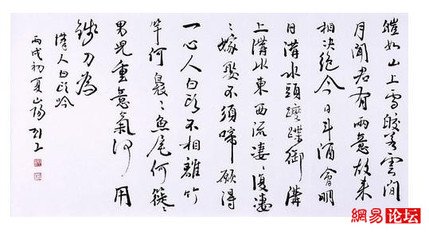 皚如山上雪皎若雲間
月聞君有兩意故來
相決絕今日斗酒會明
日溝水頭躞蹀御溝
上溝水東西流淒〻復淒
〻嫁娶不須啼願得
一心人白頭不相離竹
竿何裊〻魚尾何簁〻
男兒重意氣何用
錢刀為
漢人白頭吟
丙戌初夏山陽
網易论坛